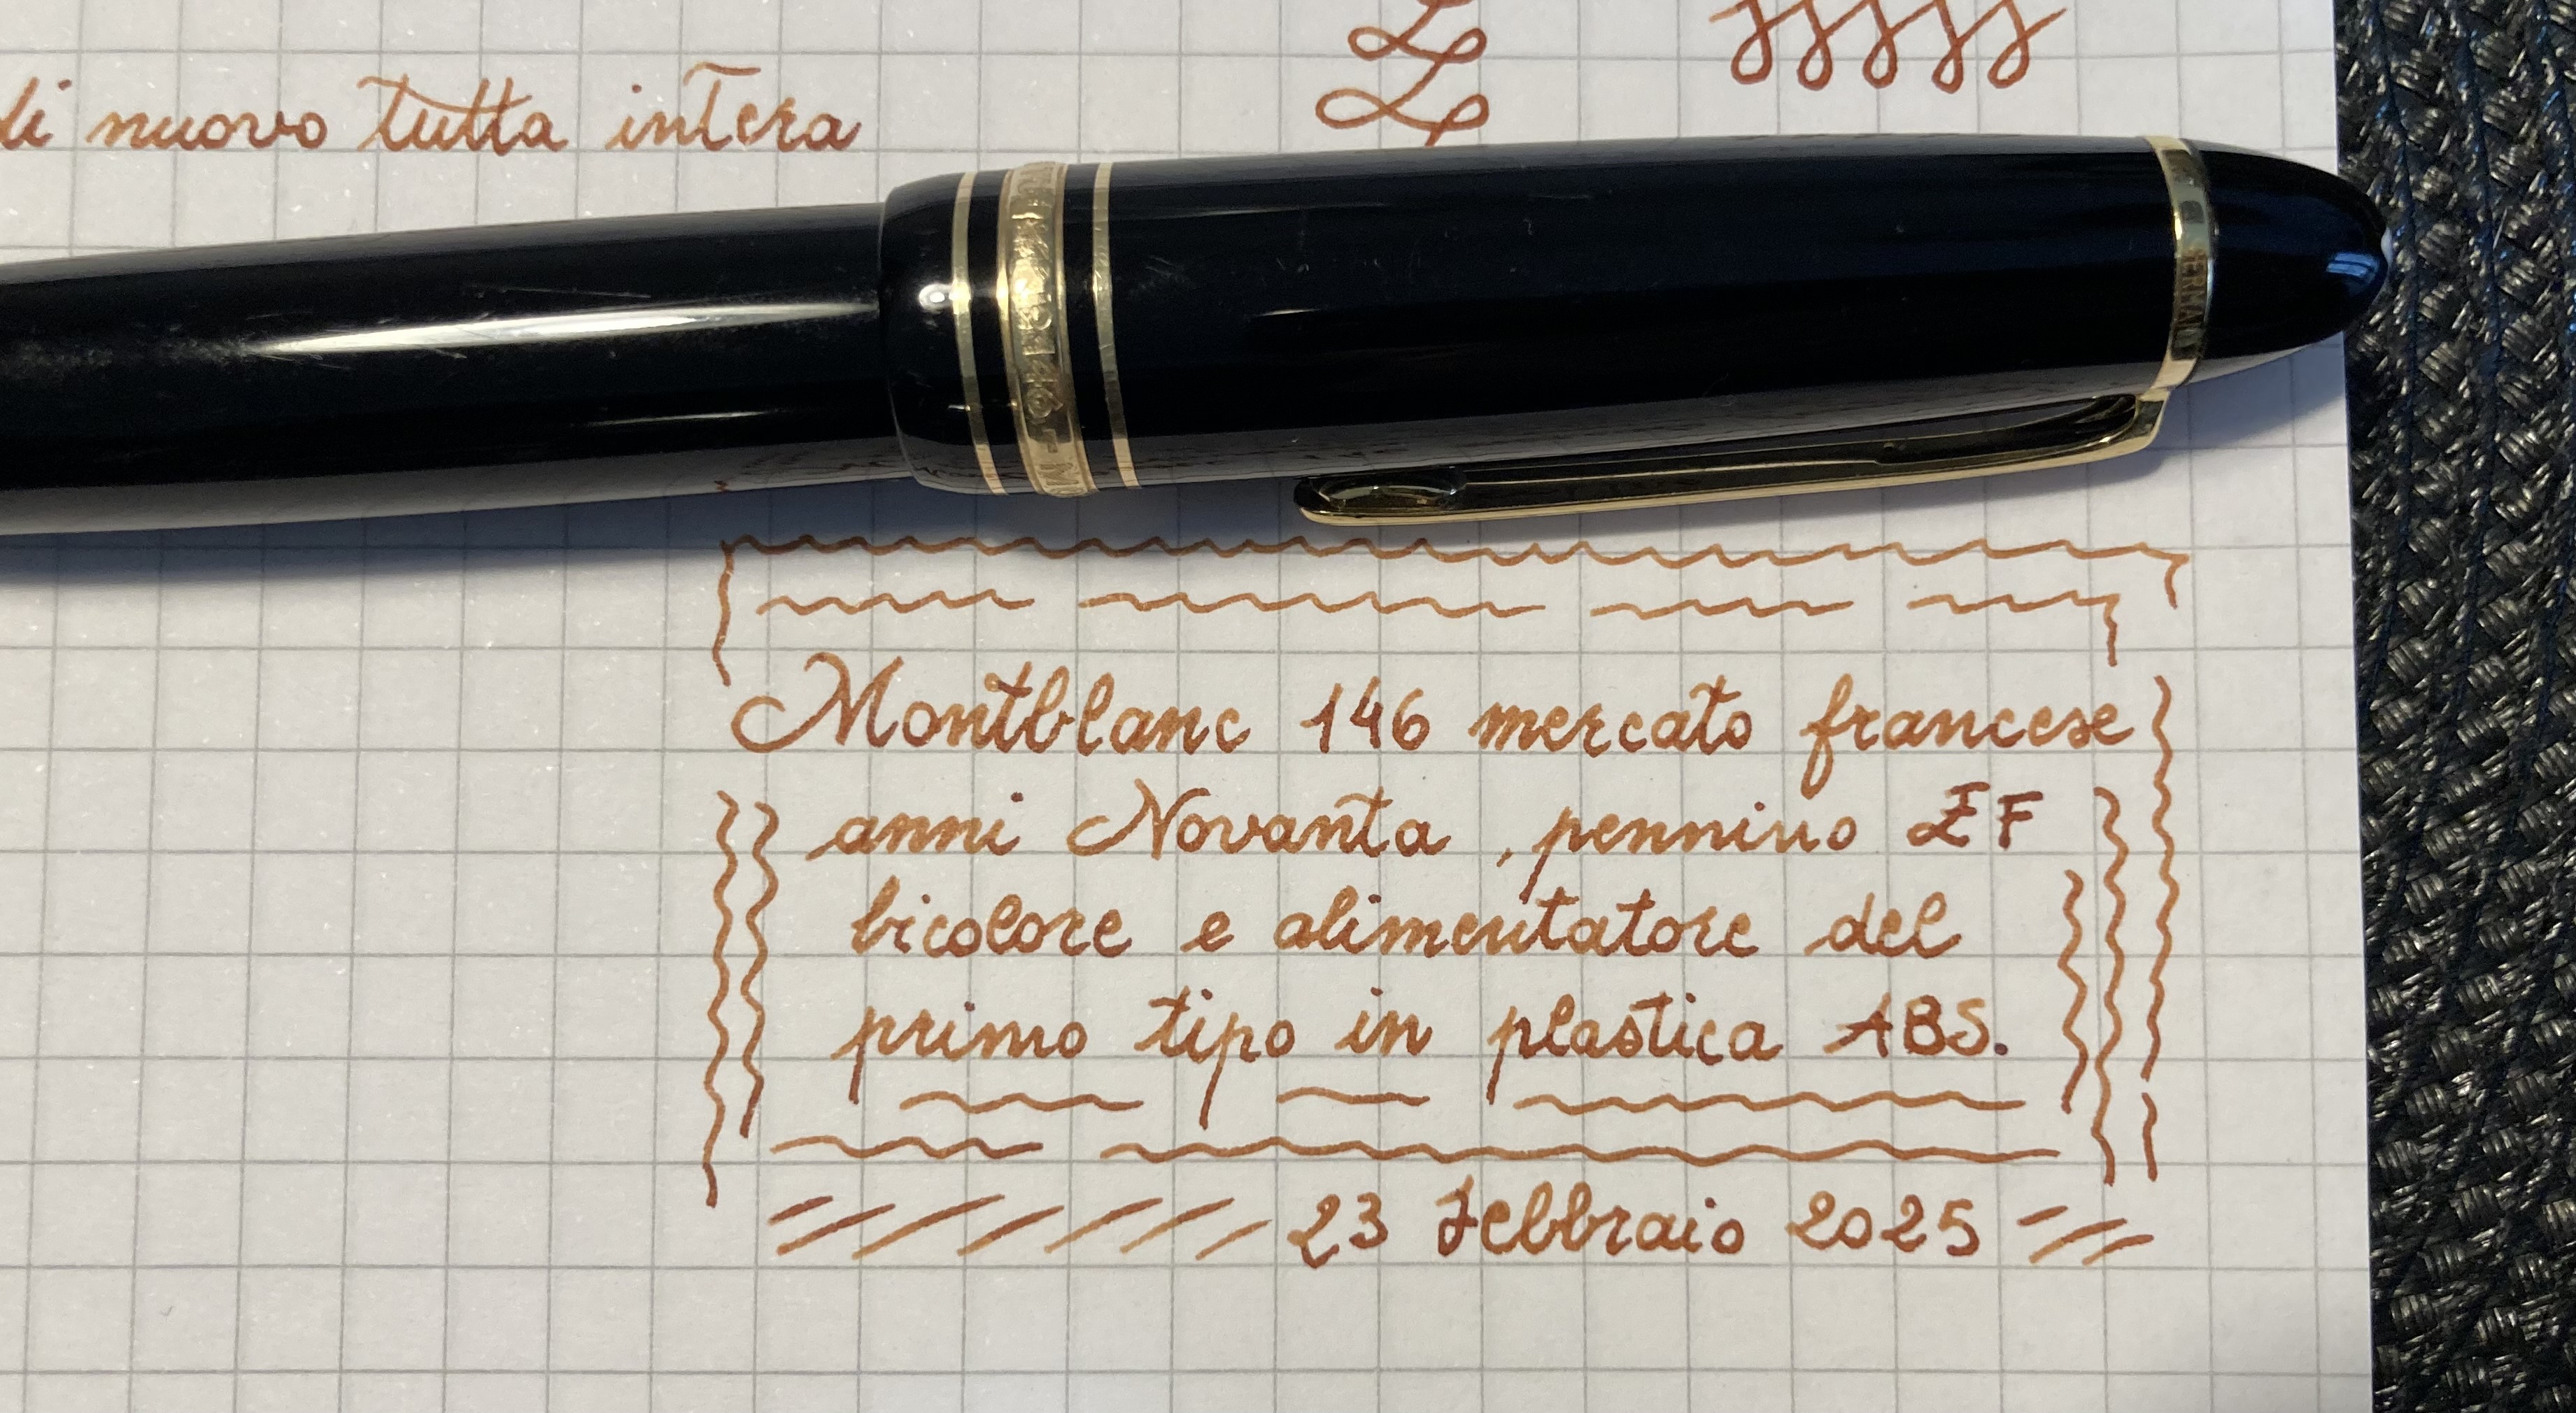 di nuovo tutta intera
GERMANY
Montblanc 146 mercato francese
anni Novanta, pennino EF
bicolore e alimentatore del
primo tipo in plastica ABS.
23 Febbraio 2025